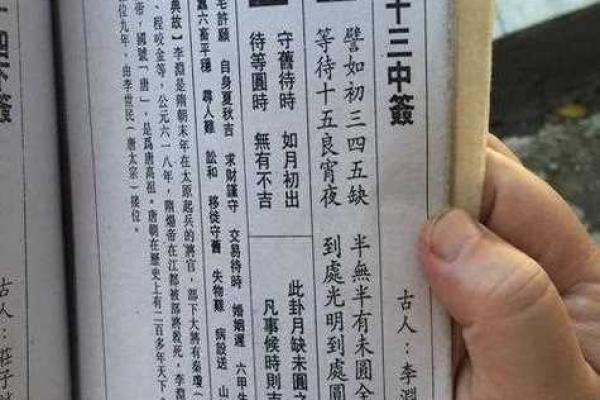 十三中簽 古人：李淵
譬如初三四五缺 半無半有未圓全
等待十五良宵夜 到處光明到處圓
守舊待時 如月初出
待等圓時 無有不吉
此卦月缺未圓之
凡事候時則吉
宅許願 自身夏秋吉 求財謹守 交易待時 婚姻遲 六甲
六畜平穩 尋人難 訟和 移徙守舊 失物難 病設送 山
典故】李淵是隋朝末年在太原起兵的將官，部下大將有秦瓊（
、程咬金等，公元六一八年，隋煬帝在江都被部將殺死，李淵
帝，國號「唐」，是爲唐高祖。唐朝在歷史上有二百多年天下。
位九年，由李世民（唐太宗）接位。
古人：莊子